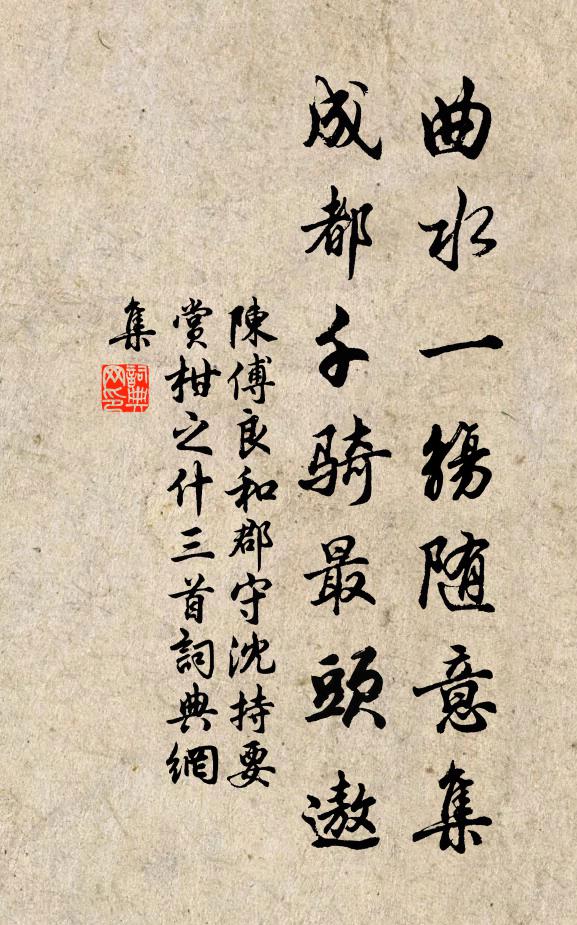 曲水一觴随意集
成都千騎最頭遨
陳傅良和郡守沈持要
賞柑之什三首詞典網
集
詞典
网印